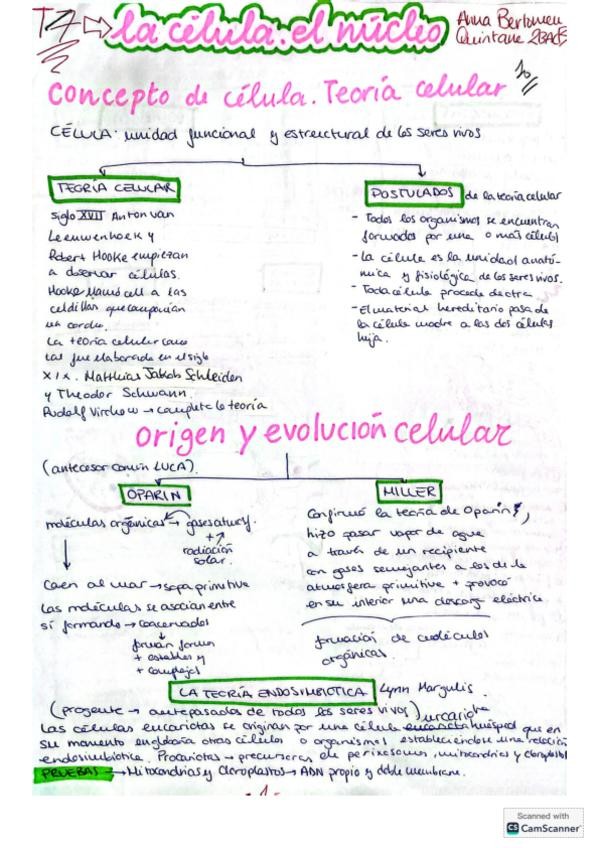 T7 ⇨ la célula. el núcleo
Quintane 2BACB
Concepto de célula. Teoría celular
CÉLULA: unidad funcional y estructural de los seres vivos
TEORÍA CELULAR
siglo XVII Anton van
Leeuwenhoek y
Robert Hooke empiezan
a observar células.
Hooke llamó cell a las
celdillas que componían
un corcho.
La teoría celular como
tal fue elaborada en el siglo
XIX. Matthias Jakob Schleiden
y Theodor Schwann.
Rudolf Virchow → completó la teoría
POSTULADOS de la teoría celular
- Todos los organismos se encuentran
formados por una o más células
- La célula es la unidad anató-
mica y fisiológica de los seres vivos.
- Toda célula procede de otra
- El material hereditario pasa de
la célula madre a las dos células
hija.
origen y evolución celular
(antecesor común LUCA).
OPARIN
moléculas orgánicas → gases atmosf.
+
radiación
solar.
Caen al mar → sopa primitiva
Las moléculas se asocian entre
sí formando → coacervados
forman
+ estables y
+ complejos
MILLER
Confirmó la teoría de Oparin,
hizo pasar vapor de agua
a través de un recipiente
con gases semejantes a los de la
atmosfera primitiva + provocó
en su interior una descarga eléctrica
formación de moléculas
orgánicas.
LA TEORÍA ENDOSIMBIÓTICA Lynn Margulis.
(progente → antepasados de todos los seres vivos) urcariota
Las células eucariotas se originan por una célula huésped que en
su momento englobaría otras células o organismos estableciéndose una relación
endosimbiótica. Procariotas → precursoras de peroxisomas, mitocondrias y cloroplastos
PRUEBAS → Mitocondrias y Cloroplastos → ADN propio y doble membrana.
- 1 -
Scanned with
CS CamScanner